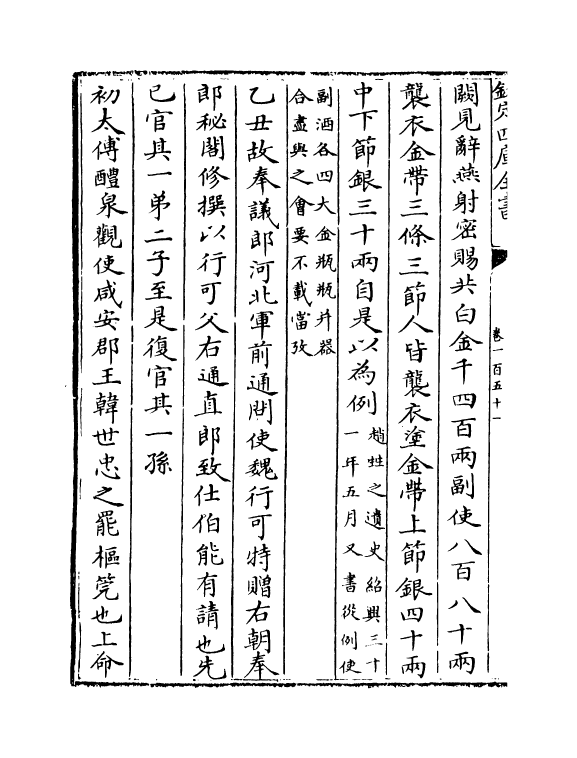 欽定四庫全書
卷一百五十一
闕見辭燕射密賜共白金千四百兩副使八百八十兩
襲衣金帶三條三節人皆襲衣塗金帶上節銀四十兩
中下節銀三十兩自是以為例趙甡之遺史紹興三十
一年五月又書從例使
副酒各四大金瓶瓶并器
合盡與之會要不載當攷
乙丑故奉議郎河北軍前通問使魏行可特贈右朝奉
郎秘閣修撰以行可父右通直郎致仕伯能有請也先
已官其一弟二子至是復官其一孫
初太傅醴泉觀使咸安郡王韓世忠之罷樞筦也上命